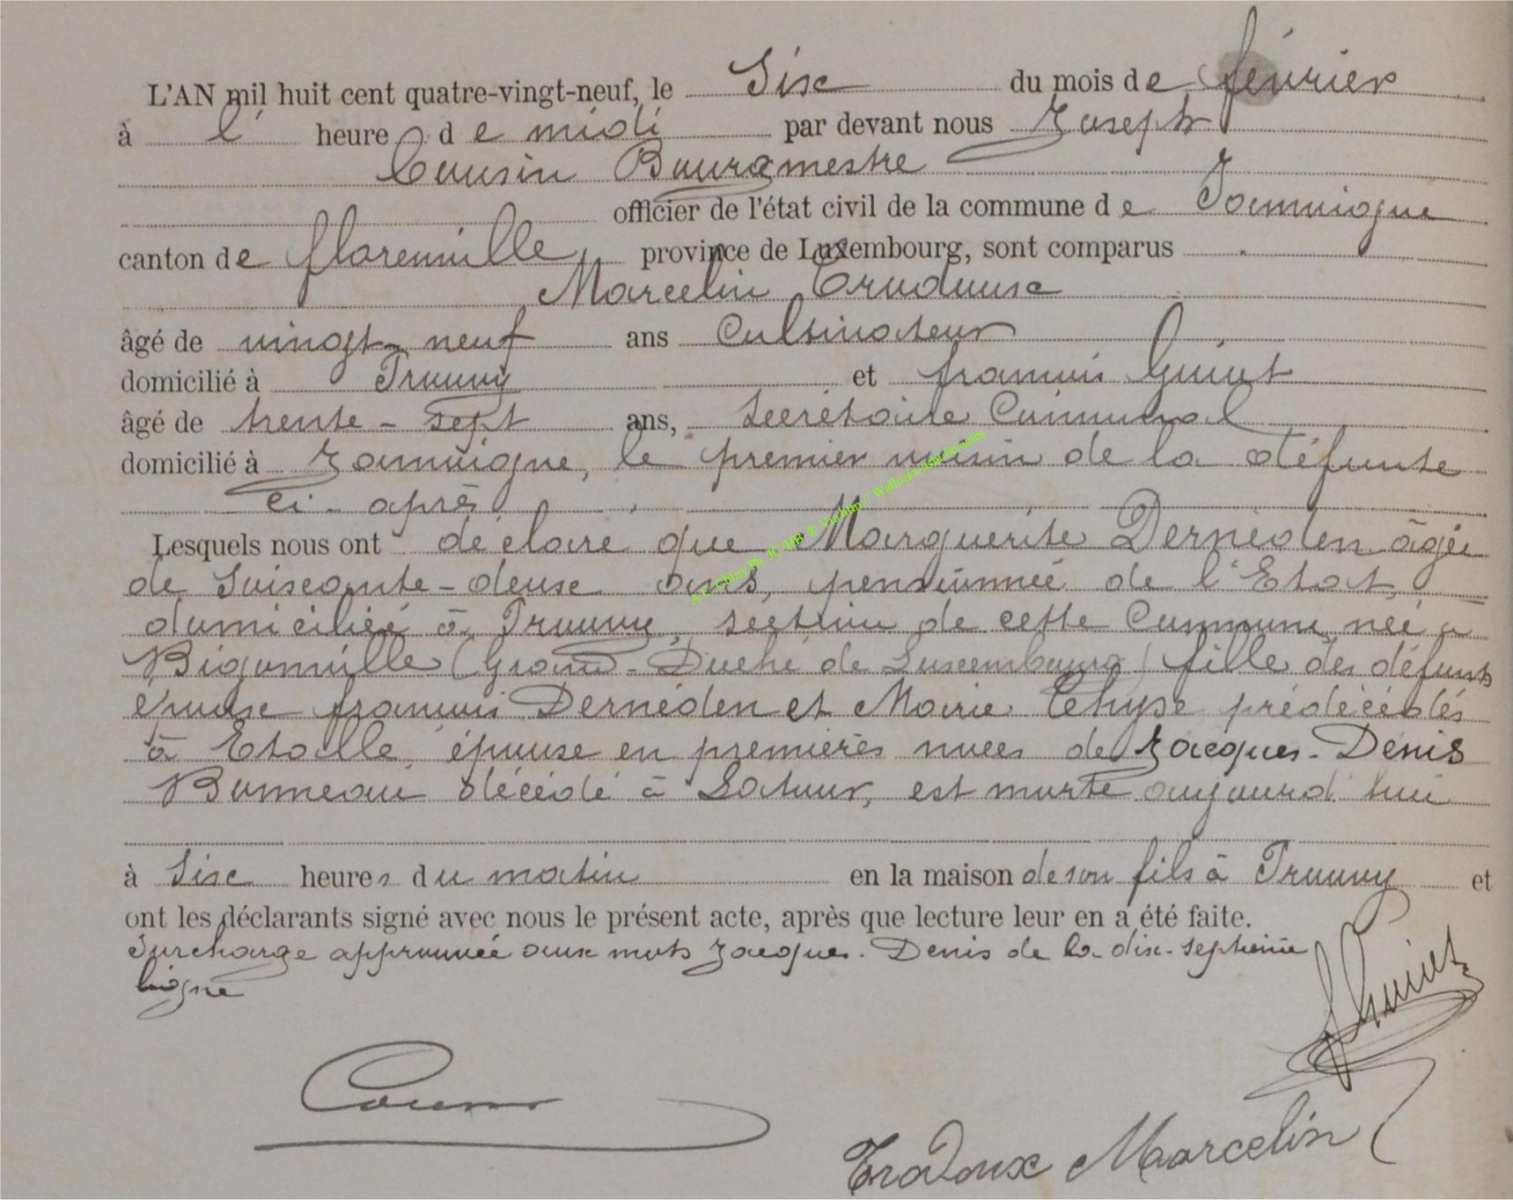 L'AN mil huit cent quatre-vingt-neuf, le Six du mois de février
à l' heure de midi par devant nous Joseph
Cousin Bourgmestre
officier de l'état civil de la commune de Jamoigne
canton de florenville province de Luxembourg, sont comparus
Marcelin
âgé de vingt-neuf ans Cultivateur
domicilié à Prouvy et francois Guiot
âgé de trente-sept ans, secrétaire Communal
domicilié à Jamoigne, le premier voisin de la défunte
ci-après
Lesquels nous ont déclaré que Marguerite Dernéden âgée
de Soixante-deux ans, pensionnée de l'Etat,
domiciliée à Prouvy, section de cette Commune, née à
Bigonville (Grand-Duché de Luxembourg) fille des défunts
époux francois Dernéden et Marie prédécédés
à Etalle, épouse en premières noces de Jacques-Denis
Bonneau décédé à Latour, est morte aujourd'hui
à Six heures du matin en la maison de son fils à Prouvy et
ont les déclarants signé avec nous le présent acte, après que lecture leur en a été faite.
Surcharge approuvée aux mots Jacques-Denis de la dix-septième
ligne
Guiot
Cousin
Trodoux Marcelin